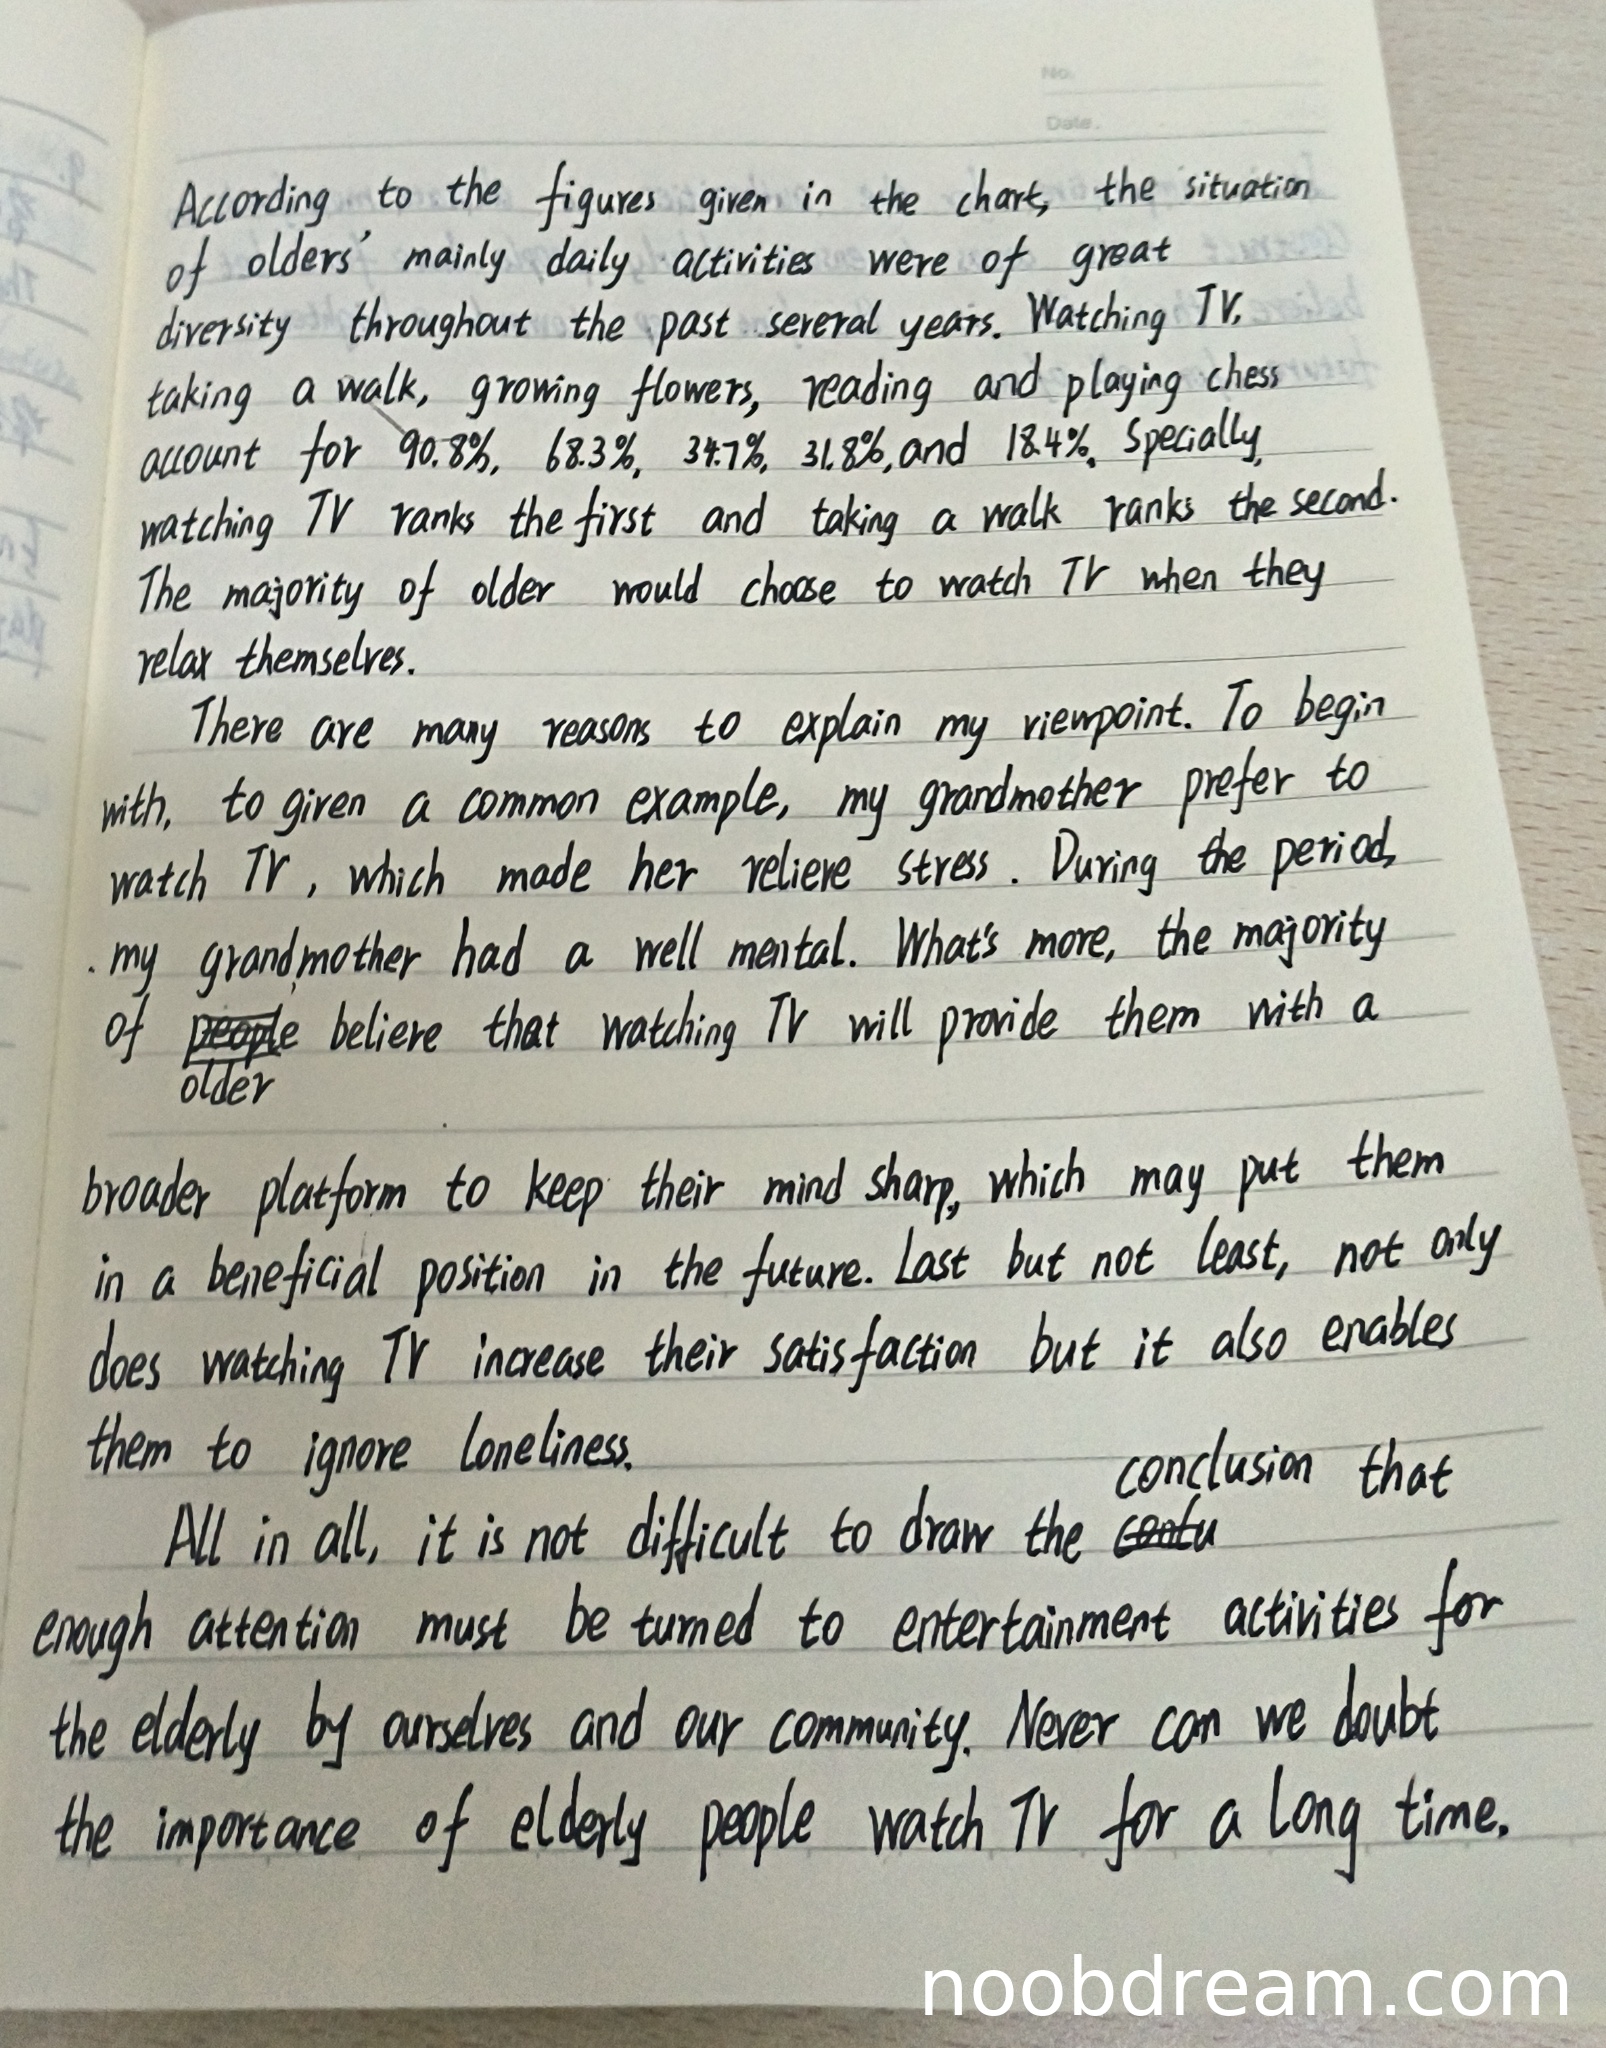 No.
Date.
According to the figures given in the chart, the situation
of olders' mainly daily activities were of great
diversity throughout the past several years. Watching TV,
taking a walk, growing flowers, reading and playing chess
account for 90.8%, 68.3%, 34.7%, 31.8%, and 18.4%. Specially,
watching TV ranks the first and taking a walk ranks the second.
The majority of older would choose to watch TV when they
relax themselves.
There are many reasons to explain my viewpoint. To begin
with, to given a common example, my grandmother prefer to
watch TV, which made her relieve stress. During the period,
my grandmother had a well mental. What's more, the majority
of people believe that watching TV will provide them with a
older
broader platform to keep their mind sharp, which may put them
in a beneficial position in the future. Last but not least, not only
does watching TV increase their satisfaction but it also enables
them to ignore loneliness.
conclusion that
All in all, it is not difficult to draw the
enough attention must be turned to entertainment activities for
the elderly by ourselves and our community. Never can we doubt
the importance of elderly people watch TV for a long time.
noobdream.com